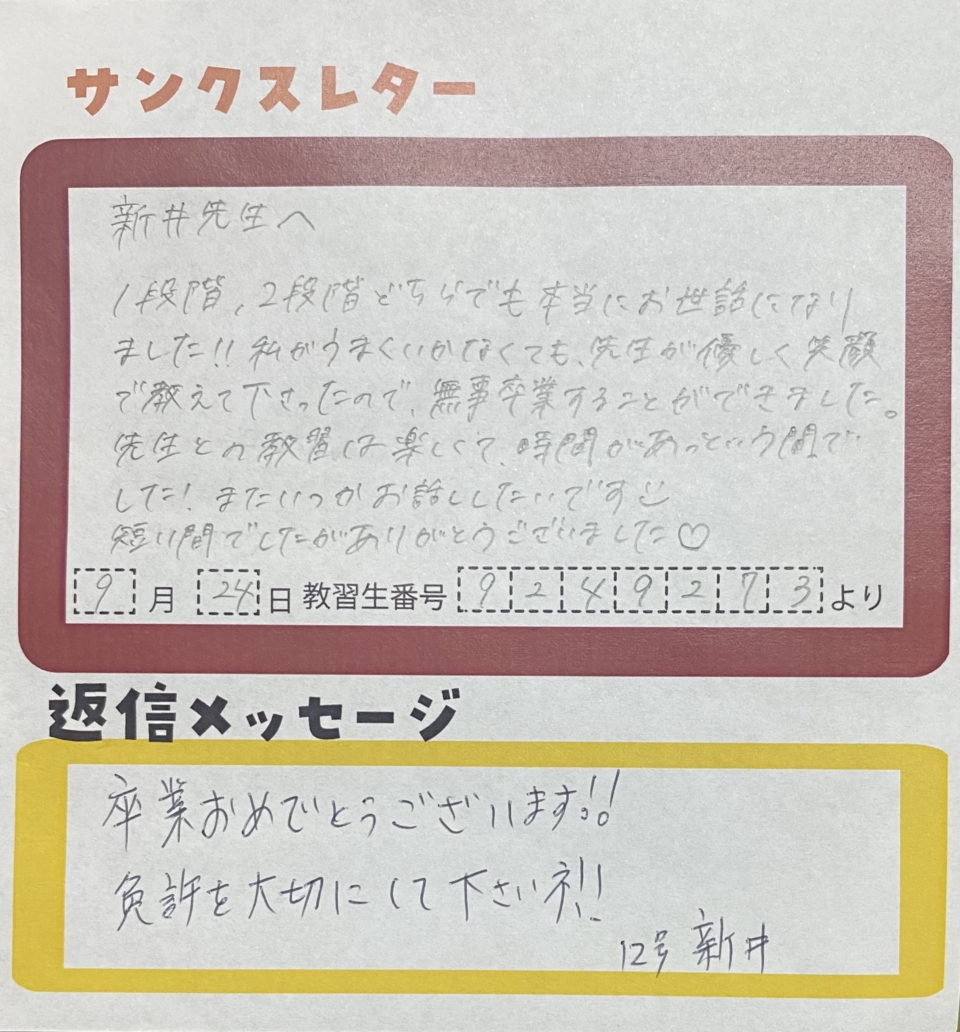 サンクスレター
新井先生へ
1段階、2段階どちらでも本当にお世話になり
ました!! 私がうまくいかなくても、先生が優しく笑顔
で教えて下さったので、無事卒業することができました。
先生との教習は楽しくて、時間があっという間で
した! またいつかお話ししたいです
短い間でしたがありがとうございました♡
9月24日 教習生番号 9249273より
返信メッセージ
卒業おめでとうございます!!
免許を大切にして下さいネ!!
12号 新井